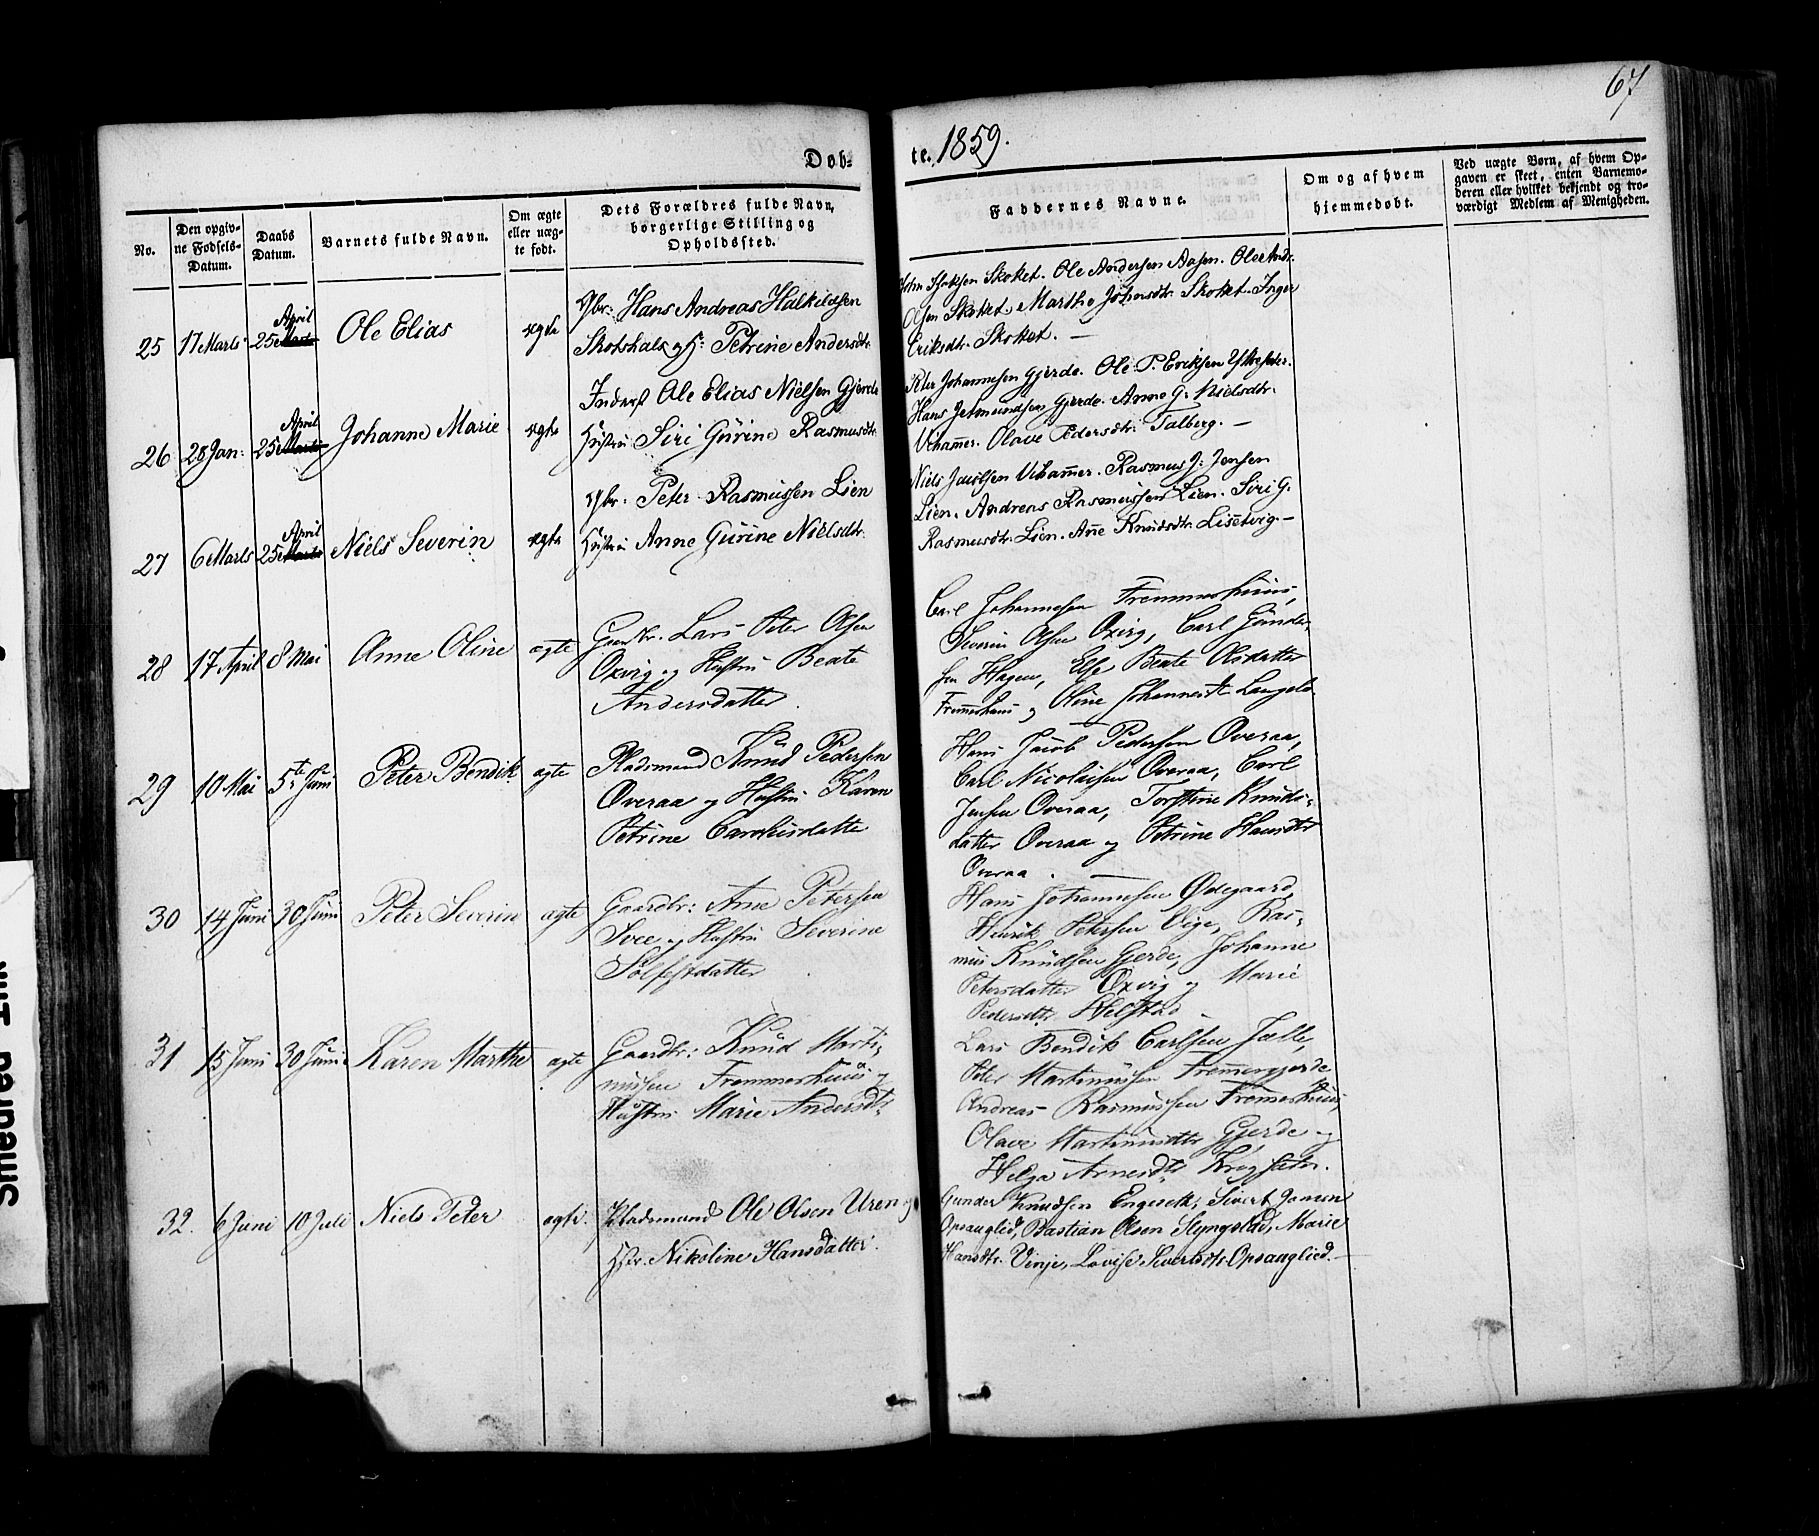 67
Døb-
te. 1859.
No.
Den opgiv-
ne Fødsels-
Datum.
Daabs
Datum.
Barnets fulde Navn.
Om ægte
eller uæg-
te født.
Dets Forældres fulde Navn,
borgerlige Stilling og
Opholdssted.
Faddernes Navne.
Om og af hvem
hjemmedøbt.
Ved uægte Børn, af hvem Op-
gaven er skeet, enten Barnemo-
deren eller hvilket bekjendt og tro-
værdigt Medlem af Menigheden.
25 17 Marts 25 April Marts Ole Elias ægte
Gbr: Hans Andreas Halkildsen
Skotshals og H: Petrine Andersdtr.
Skotet. Ole Andersen Aasen. Ole Andr.
Olsen Skotet. Marthe Johnsdtr. Skotet. Inger
Eriksdtr. Skotet. —
26 28 Jan: 25 April Marts Johanne Marie ægte
Inderst Ole Elias Nielsen Gjerde
Hustru Siri Gurine Rasmusdtr.
Peter Johannesen Gjerde. Ole P. Eriksen
Hans Jetmundsen Gjerde. Anne G. Nielsdtr.
Uhammer. Olave Pedersdtr. Talberg. —
27 6 Marts 25 April Marts Niels Severin ægte
Gbr. Peter Rasmussen Lien
Hustru Anne Gurine Nielsdtr.
Niels Jacobsen Uhammer. Rasmus J. Jensen
Lien. Andreas Rasmussen Lien. Siri G.
Rasmusdtr. Lien. Ane Knudsdtr. Lisetvig. —
28 17 April 8 Mai Anne Oline ægte
Gaardbr. Lars Peter Olsen
Oxvig og Hustru Beate
Andersdatter.
Carl Johannesen Fremmerhuus,
Severin Olsen Oxvig, Carl Gunder-
sen Hagen, Else Beate Olsdatter
Fremmerhuus og Oline Johannesdtr
29 10 Mai 5te Juni Peter Bendik ægte
Pladsmand Knud Pedersen
Overaa og Hustru Karen
Petrine
Hans Jacob Pedersen Overaa,
Carl Nicolaisen Overaa, Carl
Jensen Overaa, Torstine Knuds-
datter Overaa og Petrine Hansdtr
Overaa. —
30 14 Juni 30 Juni Peter Severin ægte
Gaardbr: Arne Petersen
Svee og Hustru Severine
Sølfestdatter
Hans Johannesen Ødegaard,
Henrik Petersen Vige, Ras-
mus Knudsen Gjerde, Johanne
Petersdatter Oxvig og Marie
Pedersdtr. Helstad
31 15 Juni 30 Juni Karen Marthe ægte
Gaardbr: Knud Marti-
nussen Fremmerhuus og
Hustru Marie Andersdtr.
Lars Bendik Carlsen
Peter Martinussen Fremmergjerde
Andreas Rasmussen Fremmerhuus,
Olave Martinusdtr Gjerde og
Helga Arnesdtr
32. 6 Juni 10 Juli Niels Peter ægte.
Pladsmand Ole Olsen Uren og
Hstr. Nikoline Hansdatter.
Gunder Knudsen Engeset, Sivert Jonsen
Opsanglied, Bastian Olsen Slyngstad, Marie
Hansdtr. Vinje, Lovise Sivertsdtr. Opsanglied. —